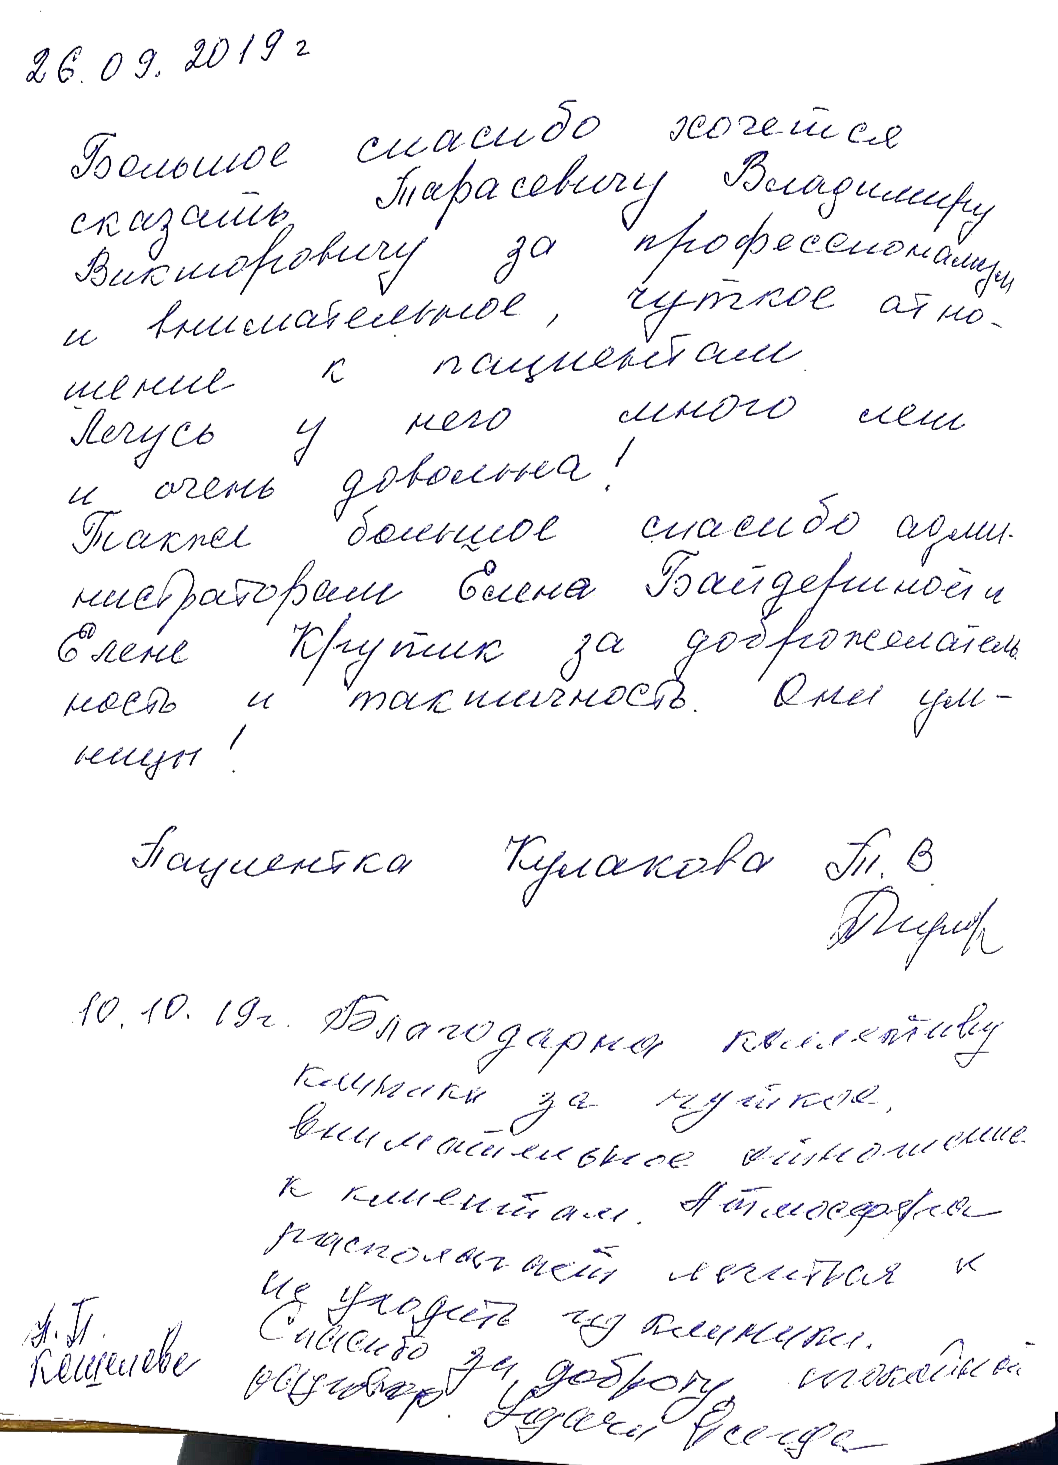 26.09.2019 г
Большое спасибо хочется
сказать Тарасевичу Владимиру
Викторовичу за профессионализм
и внимательное, чуткое отно-
шение к пациентам.
Лечусь у него много лет
и очень довольна!
Также большое спасибо адми-
нистраторам Елена Байдериной и
Елене Крупик за доброжелатель-
ность и тактичность. Они ум-
ницы!
Пациентка Кулакова Т. В.
10.10.19г. Благодарна коллективу
клиники за чуткое,
внимательное отношение
к клиентам. Атмосфера
располагает лечиться и
не уходить из клиники.
Спасибо за доброту, спокойной
Удачи Всегда
Н. П.
Кошелева